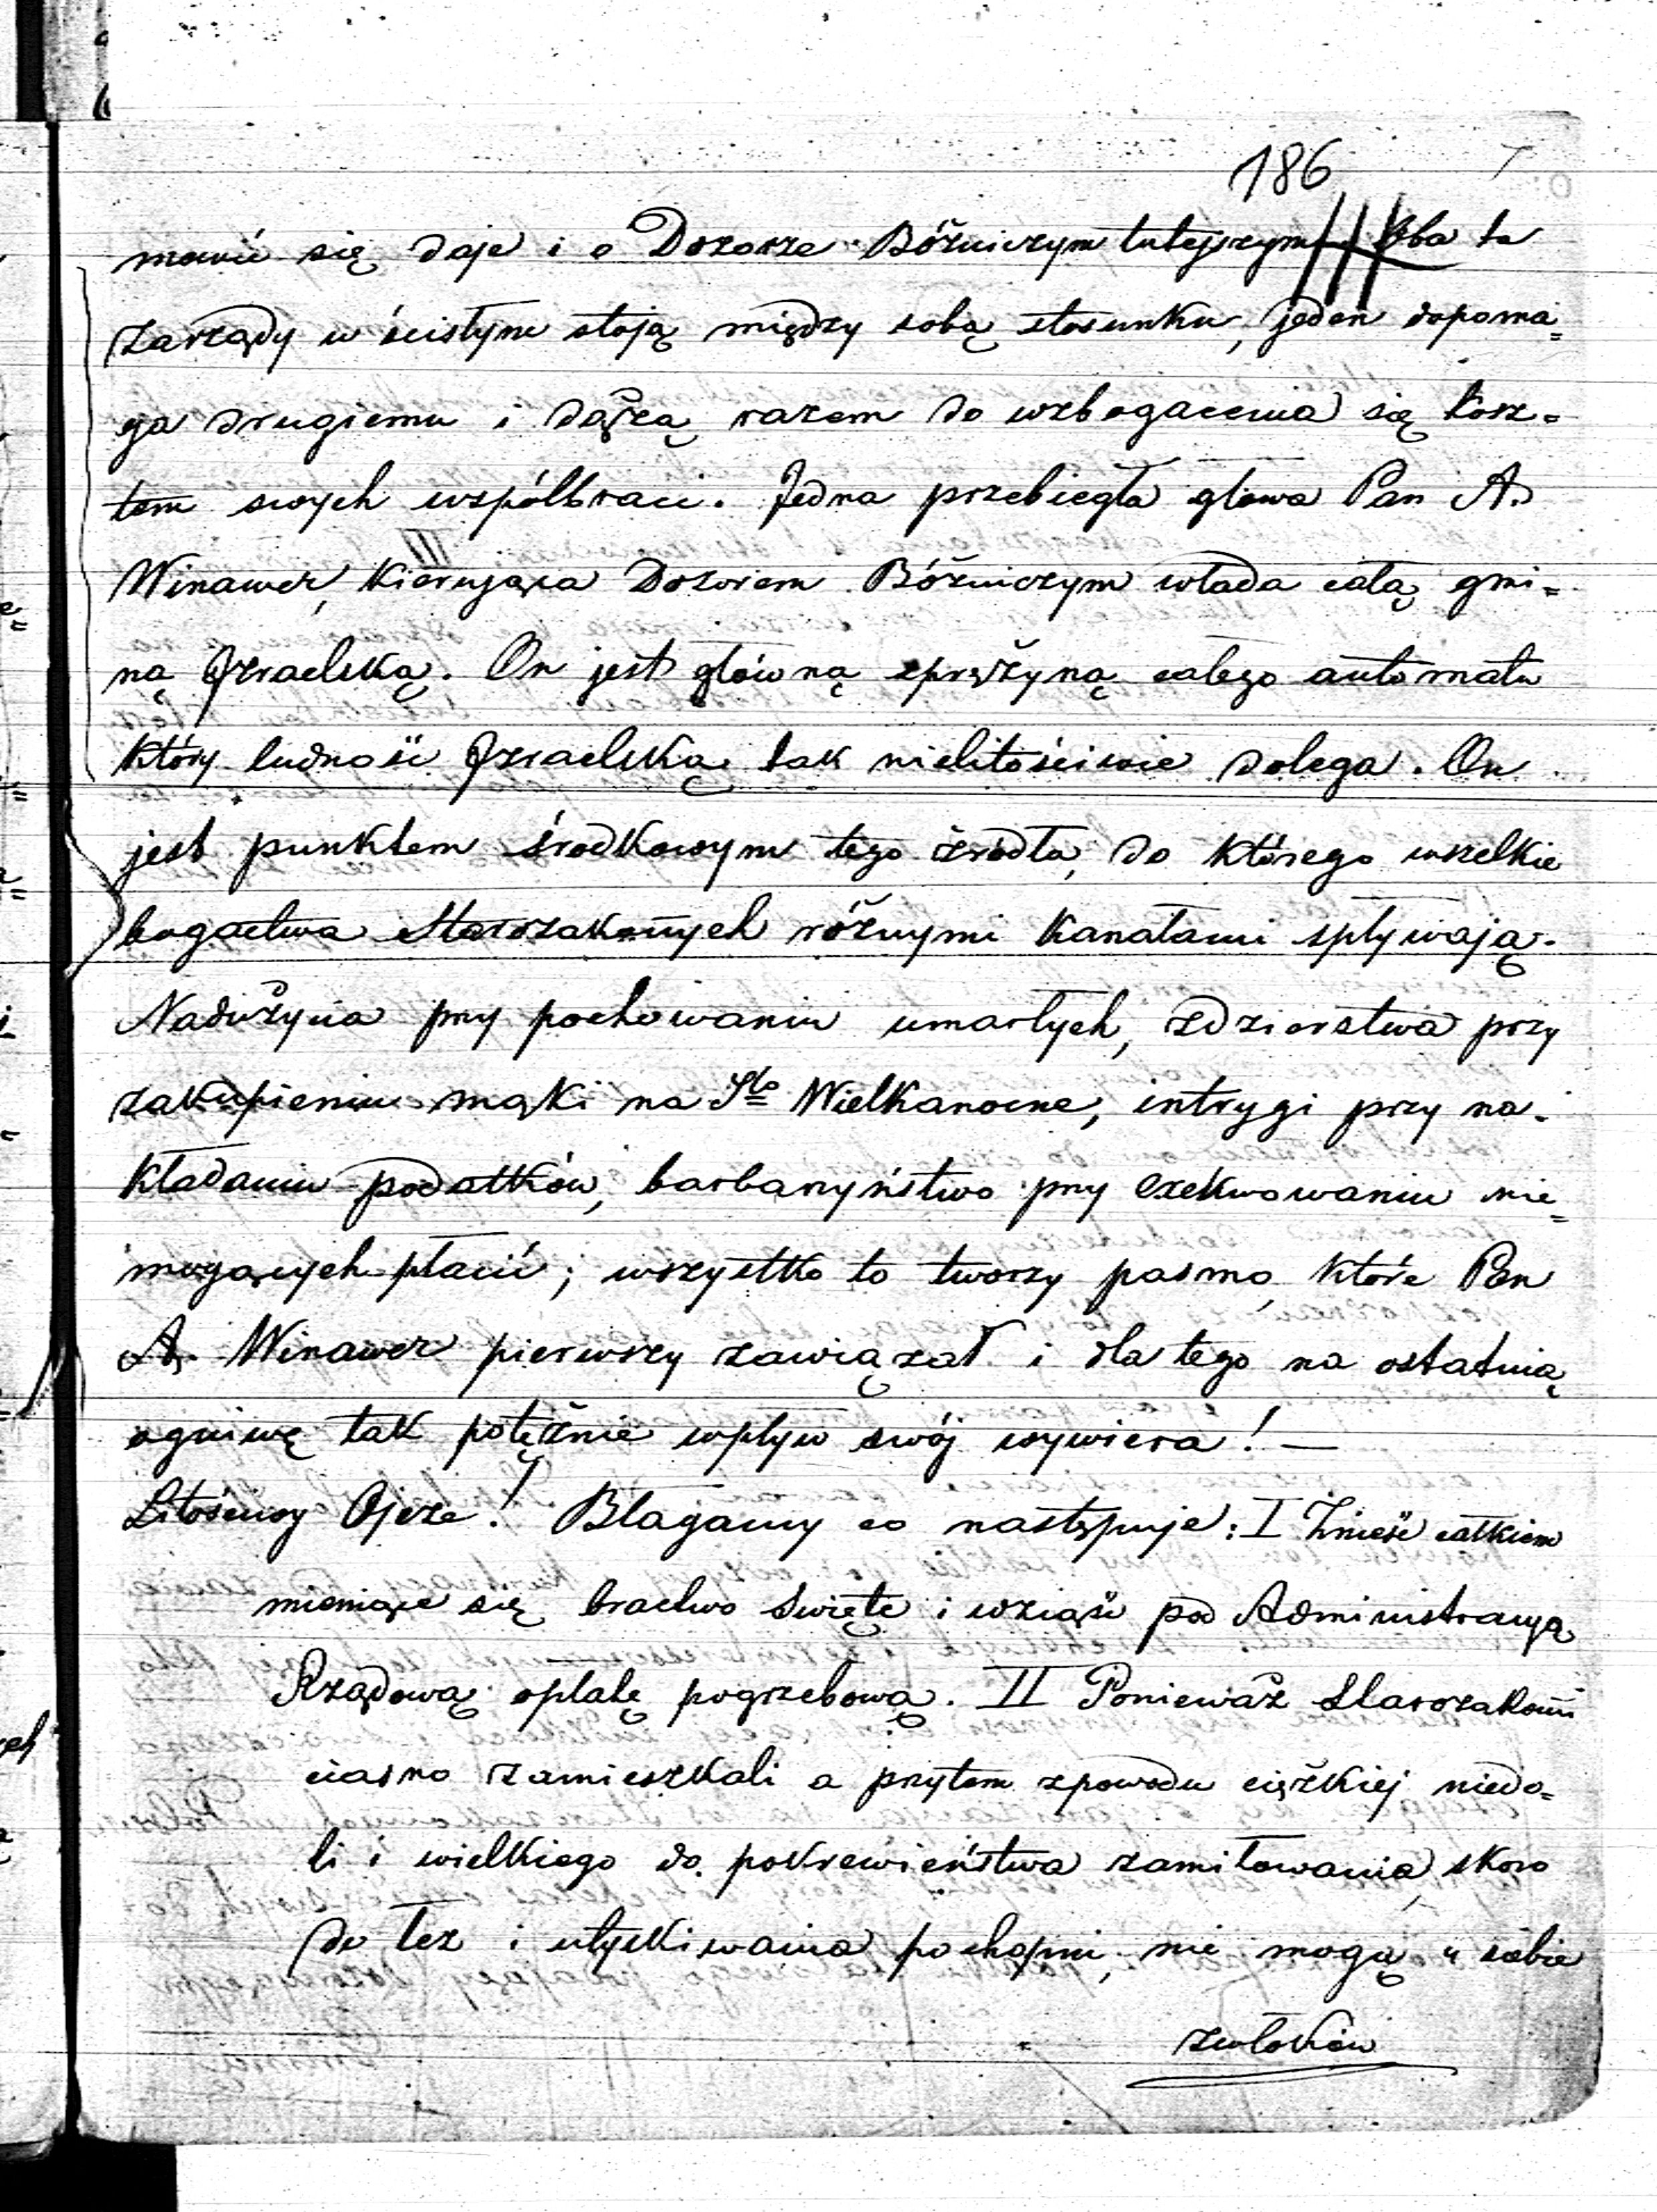 186
mowić się daje i o Dozorze Bóźniczym tutejszym Oba te
zarządy w ścisłym stoją między sobą stosunku, jeden dopoma=
ga drugiemu i dążą razem do wzbogacenia się kosz=
tem swych współbraci. Jedna przebiegła głowa Pan A.
Winawer, kierująca Dozorem Bóźniczym włada całą gmi=
ną Izraelską. On jest główną sprężyną całego automatu
który ludność Izraelską tak nielitościwie dolega. On
jest punktem środkowym tego źródła, do którego wszelkie
bogactwa Starozakonnych różnymi kanałami spływają.
Nadużycia przy pochowaniu umarłych, zdzierstwa przy
zakupieniu mąki na Sto Wielkanocne, intrygi przy na=
kładaniu podatków, barbaryństwo przy exekwowaniu nie=
mogących płacić; wszystko to tworzy pasmo, które Pan
A. Winawer pierwszy zawiązał i dla tego na ostatnią
ogniwę tak potężnie wpływ swój wywiera! —
Litościwy Ojcze! Błagamy co następuje: I Znieść całkiem
mieniące się bractwo Święte i wziąść pod Administracyą
Rządową opłatę pogrzebową. II Ponieważ Starozakoni
ciasno zamieszkali a przytem zpowodu ciężkiej niedo=
li i wielkiego do pokrewieństwa zamiłowania, skoro
do łez i utyskiwania pochopni, nie mogą u siebie
zwłoków